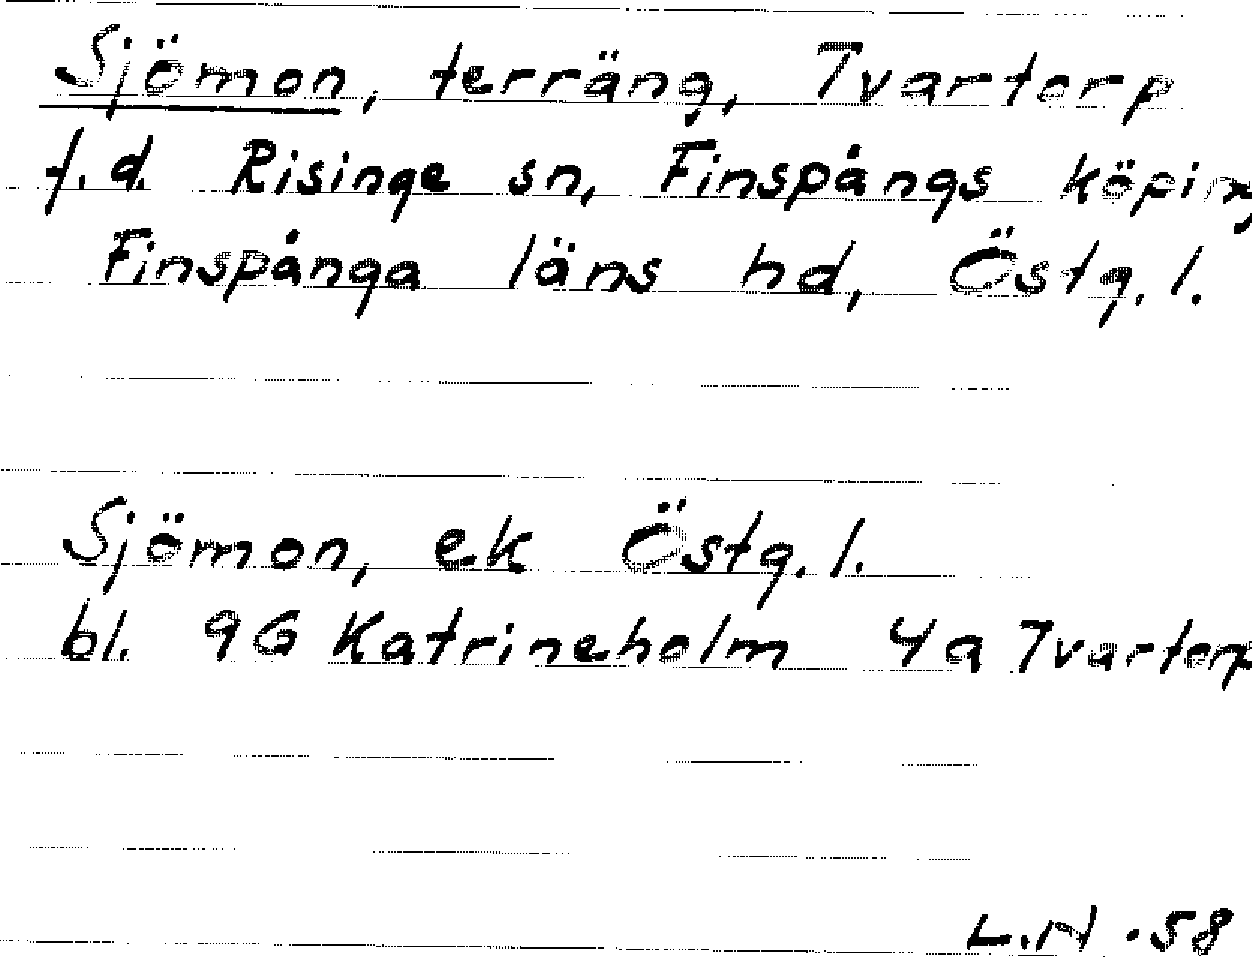 Sjömon, terräng, Tvartorp
f.d. Risinge sn, Finspångs köping
Finspånga läns hd, Östg. l.
Sjömon, ek Östg. l.
bl. 9G Katrineholm 4a Tvartorp
L.H .58